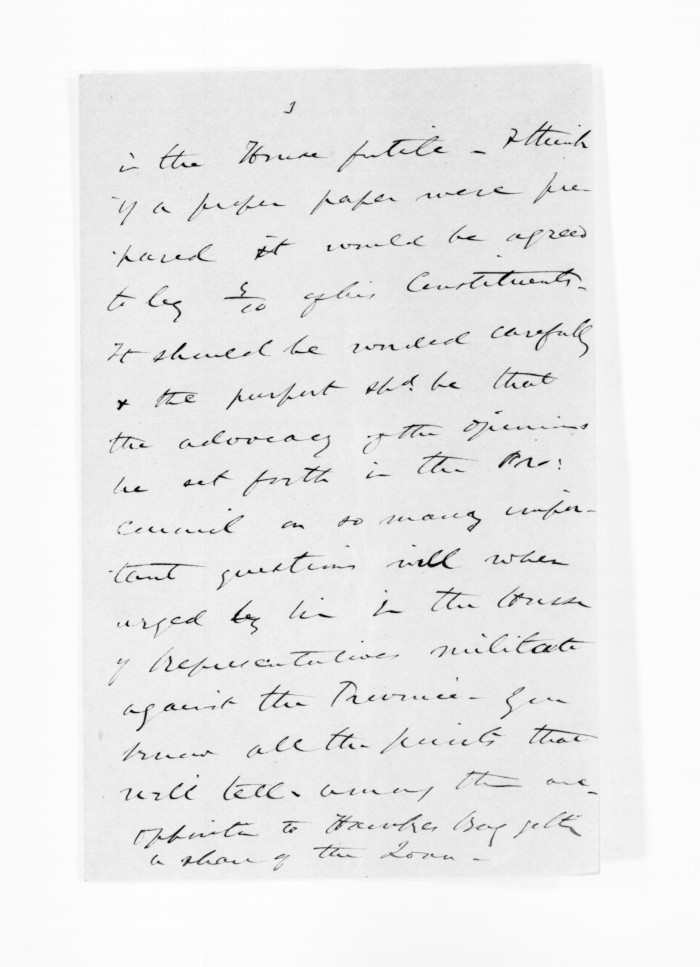 3
in the House futile - I think
if a proper paper were pre-
pared it would be agreed
to by 9/10 of his Constituents -
It should be worded carefully
& the purport shd. be that
the advocacy of the opinions
he set forth in the Pro:
Council on so many impor-
tant questions will when
urged by him in the House
of Representatives militate
against the Province - You
know all the points that
will tell - among them are
opposition to Hawkes Bay getting
a share of the Loan -